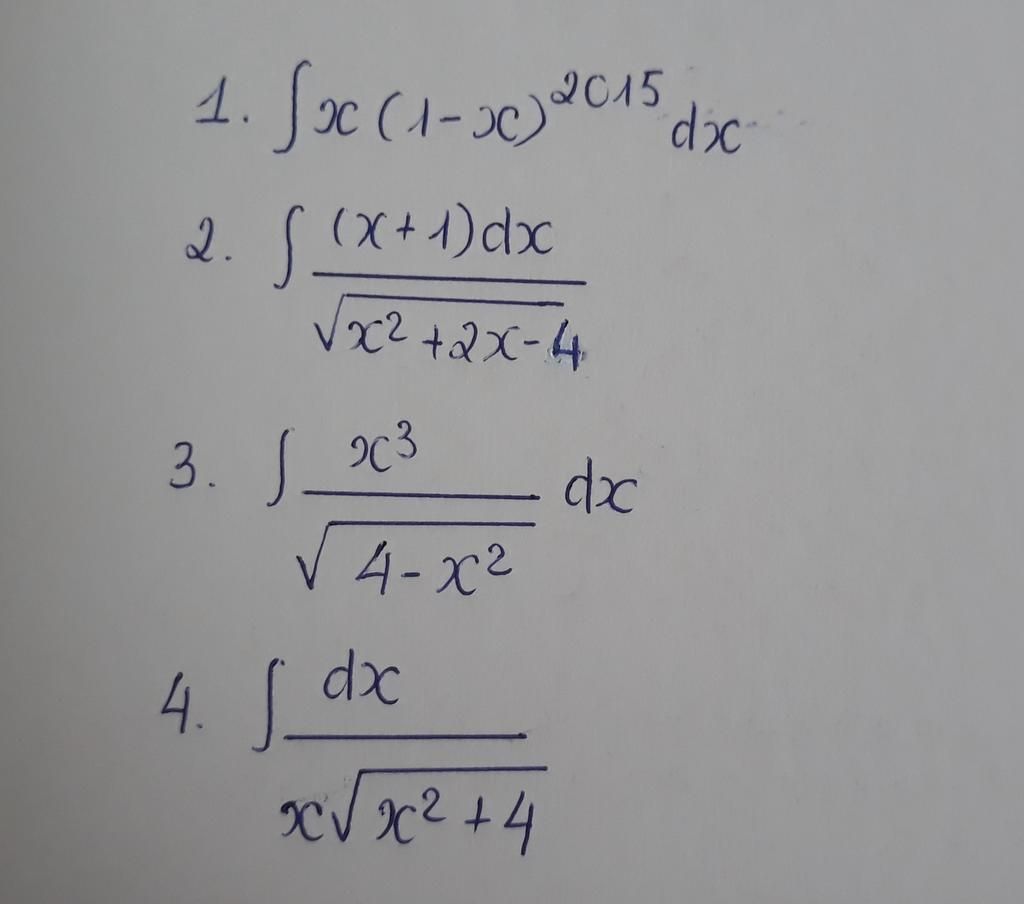 1. ∫x(1-x)^2015 dx
2. ∫ (x+1)dx / √(x²+2x-4)
3. ∫ x³ / √(4-x²) dx
4. ∫ dx / x√(x²+4)